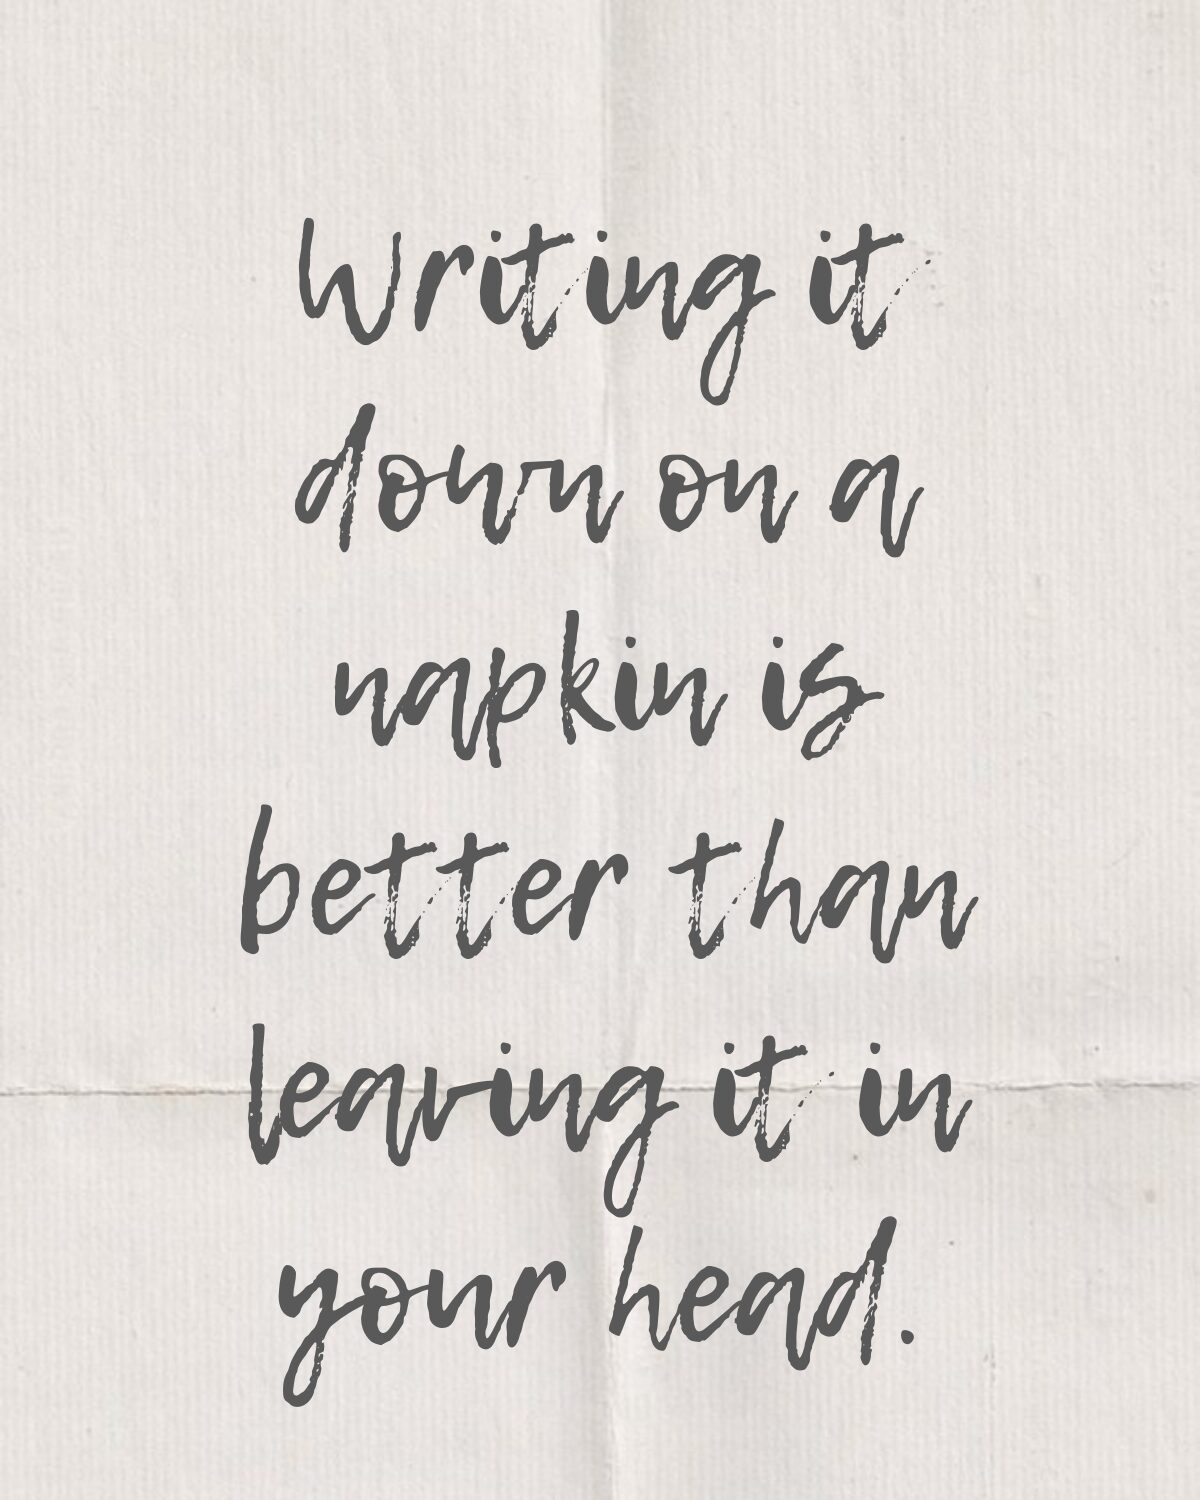 Writing it
down on a
napkin is
better than
leaving it in
your head.